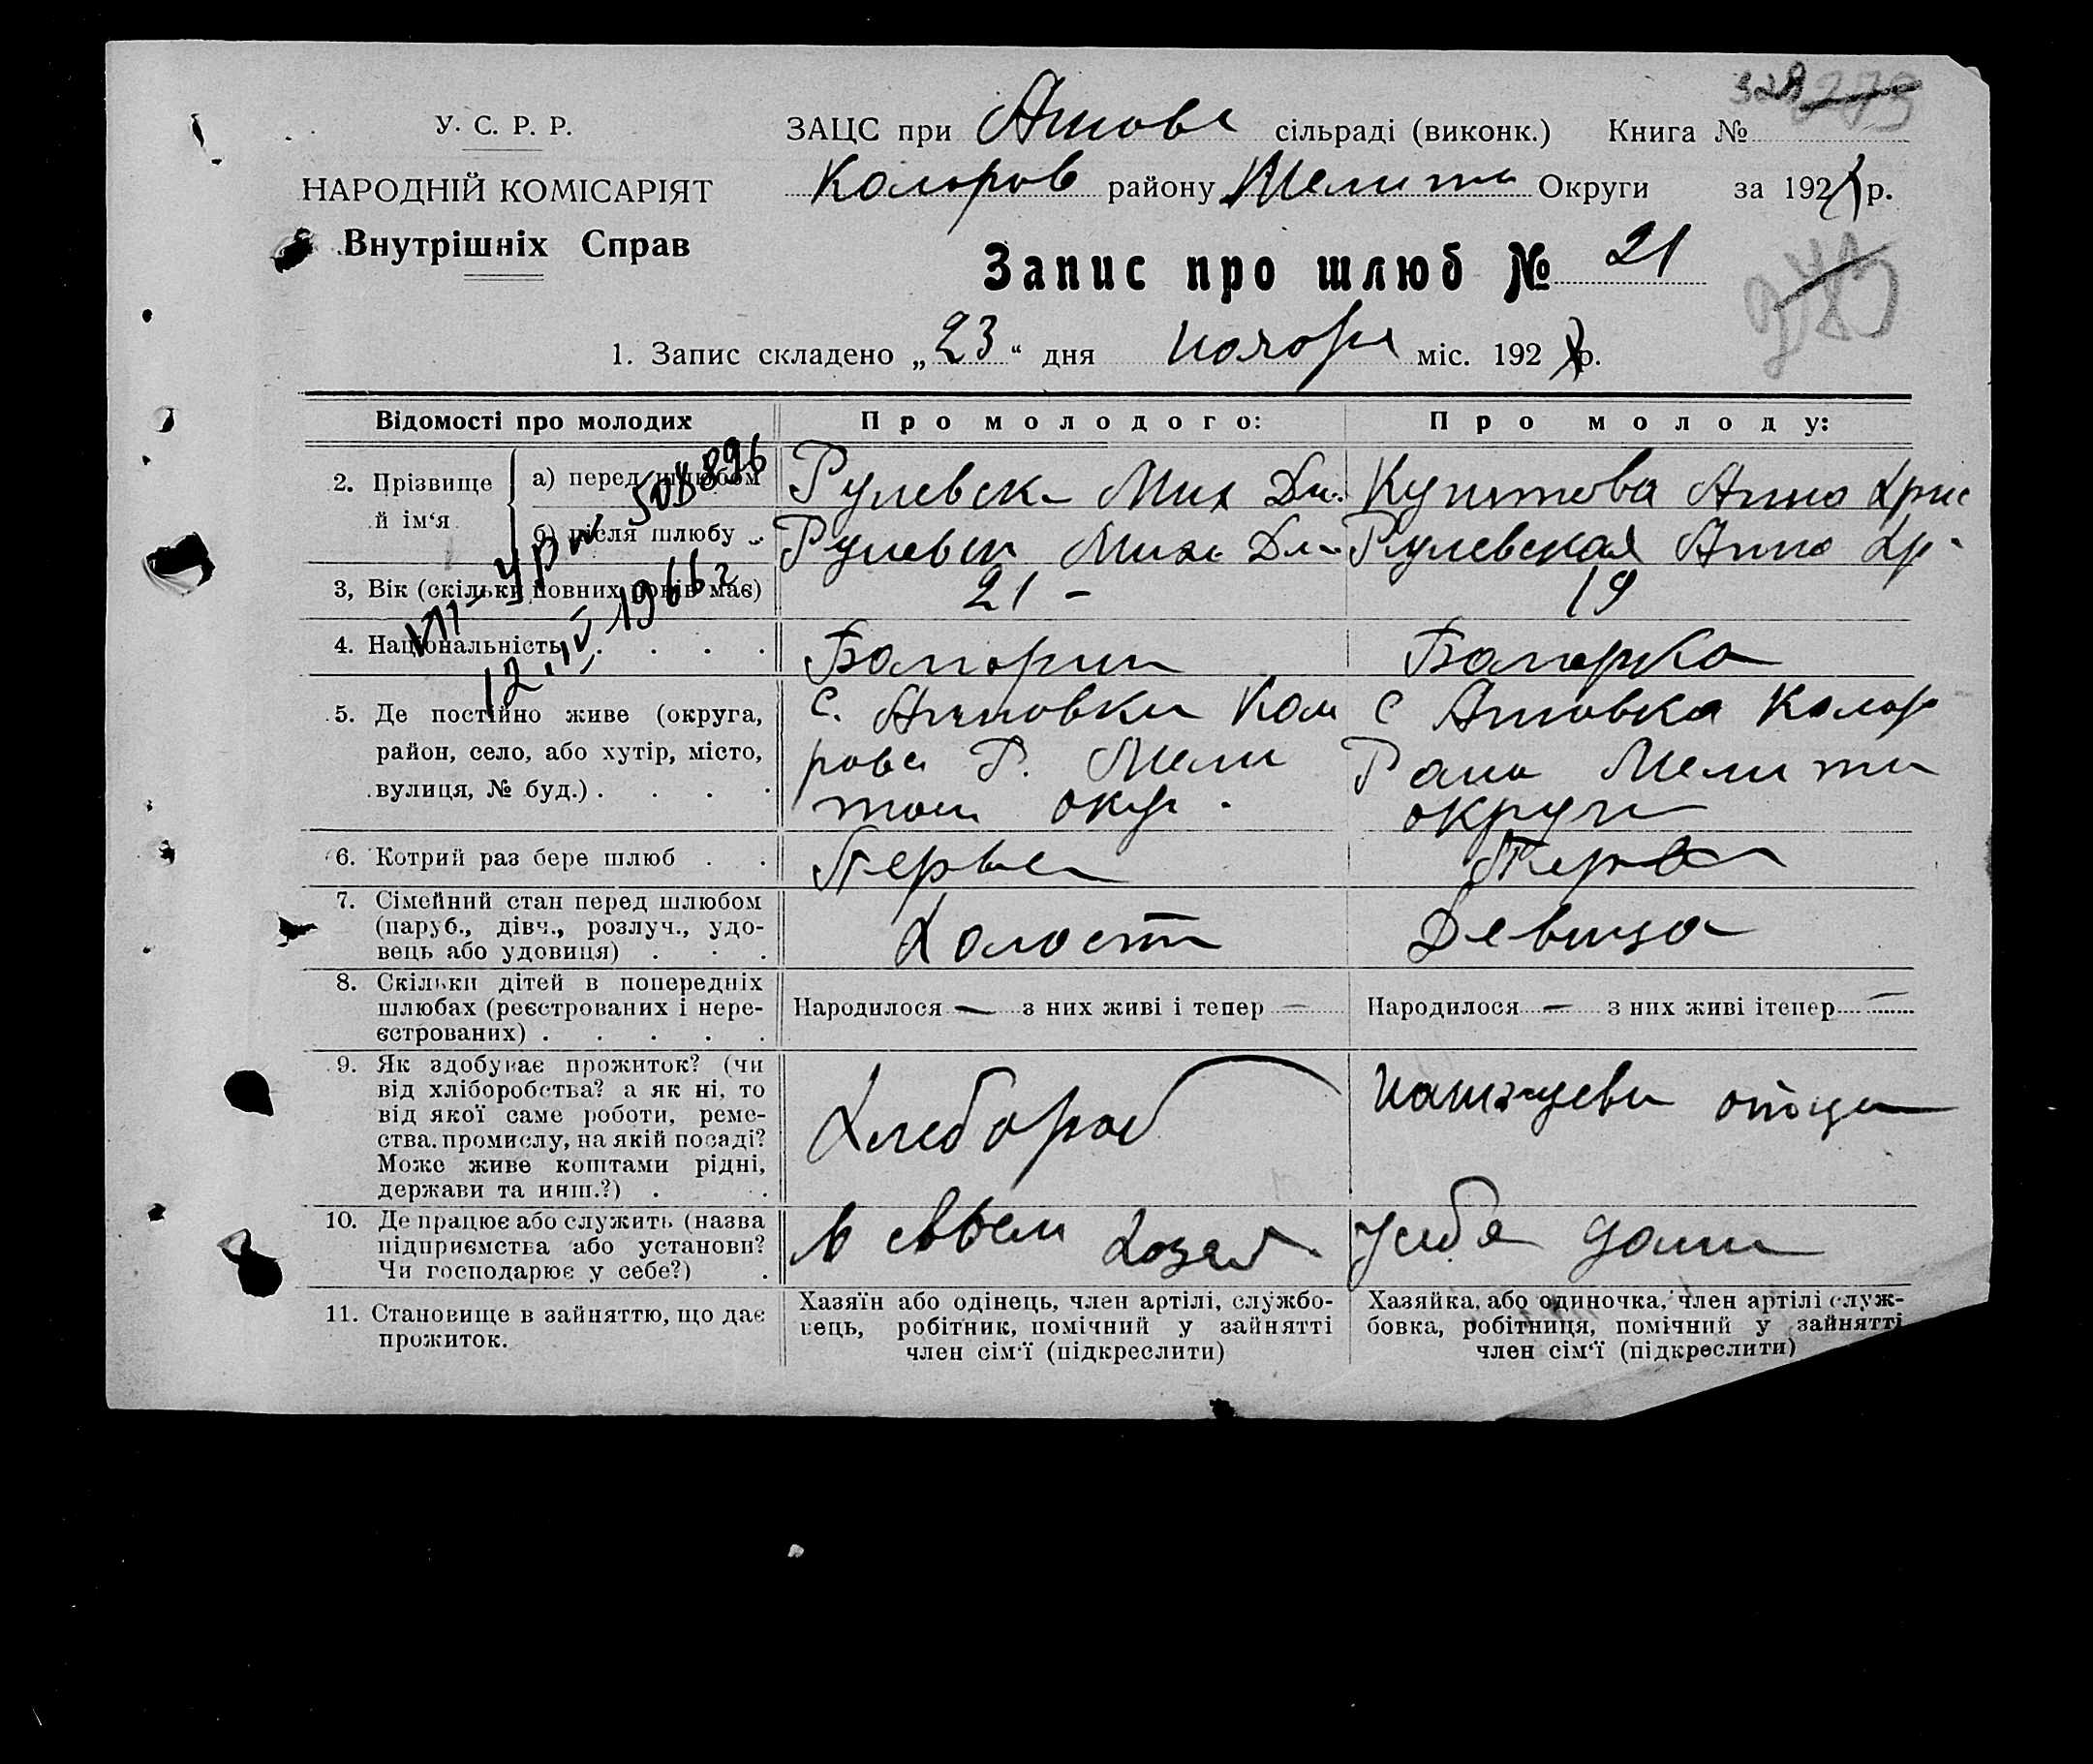 328 273
У. С. Р. Р.
НАРОДНІЙ КОМІСАРІЯТ
Внутрішніх Справ
ЗАЦС при сільраді (виконк.) Книга №
Коларов району Мелит Округи за 192 р.
Запис про шлюб № 21
1. Запис складено „23“ дня ноября міс. 192 р.
Відомості про молодих
Про молодого:
Про молоду:
2. Прізвище й ім‘я
а) перед шлюбом
Рулевск Мих Дм.
Анна Хрис
б) після шлюбу
Рулевск Миха Дм
Рулевская Анна Хр
3, Вік (скільки повних років має)
21 -
19
4. Національність
Болгорин
Болгорка
508896
12. IV 1966 г
5. Де постійно живе (округа,
район, село, або хутір, місто,
вулиця, № буд.)
с. Кола
рова Р. Мели
топ окр.
с Колар
Мелито
округи
6. Котрий раз бере шлюб
Первы
Перв
7. Сімейний стан перед шлюбом
(паруб., дівч., розлуч., удо-
вець або удовиця)
Холост
Девица
8. Скільки дітей в попередніх
шлюбах (реєстрованих і нере-
єстрованих)
Народилося — з них живі і тепер —
Народилося — з них живі ітепер —
9. Як здобуває прожиток? (чи
від хліборобства? а як ні, то
від якої саме роботи, реме-
ства, промислу, на якій посаді?
Може живе коштами рідні,
держави та инш.?)
Хлебороб
отца
10. Де працює або служить (назва
підприємства або установи?
Чи господарює у себе?)
в своем хозяй
у себя дома
11. Становище в зайняттю, що дає
прожиток.
Хазяїн або одінець, член артілі, службо-
вець, робітник, помічний у зайнятті
член сім‘ї (підкреслити)
Хазяйка, або одиночка, член артілі служ-
бовка, робітниця, помічний у зайнятті
член сім‘ї (підкреслити)